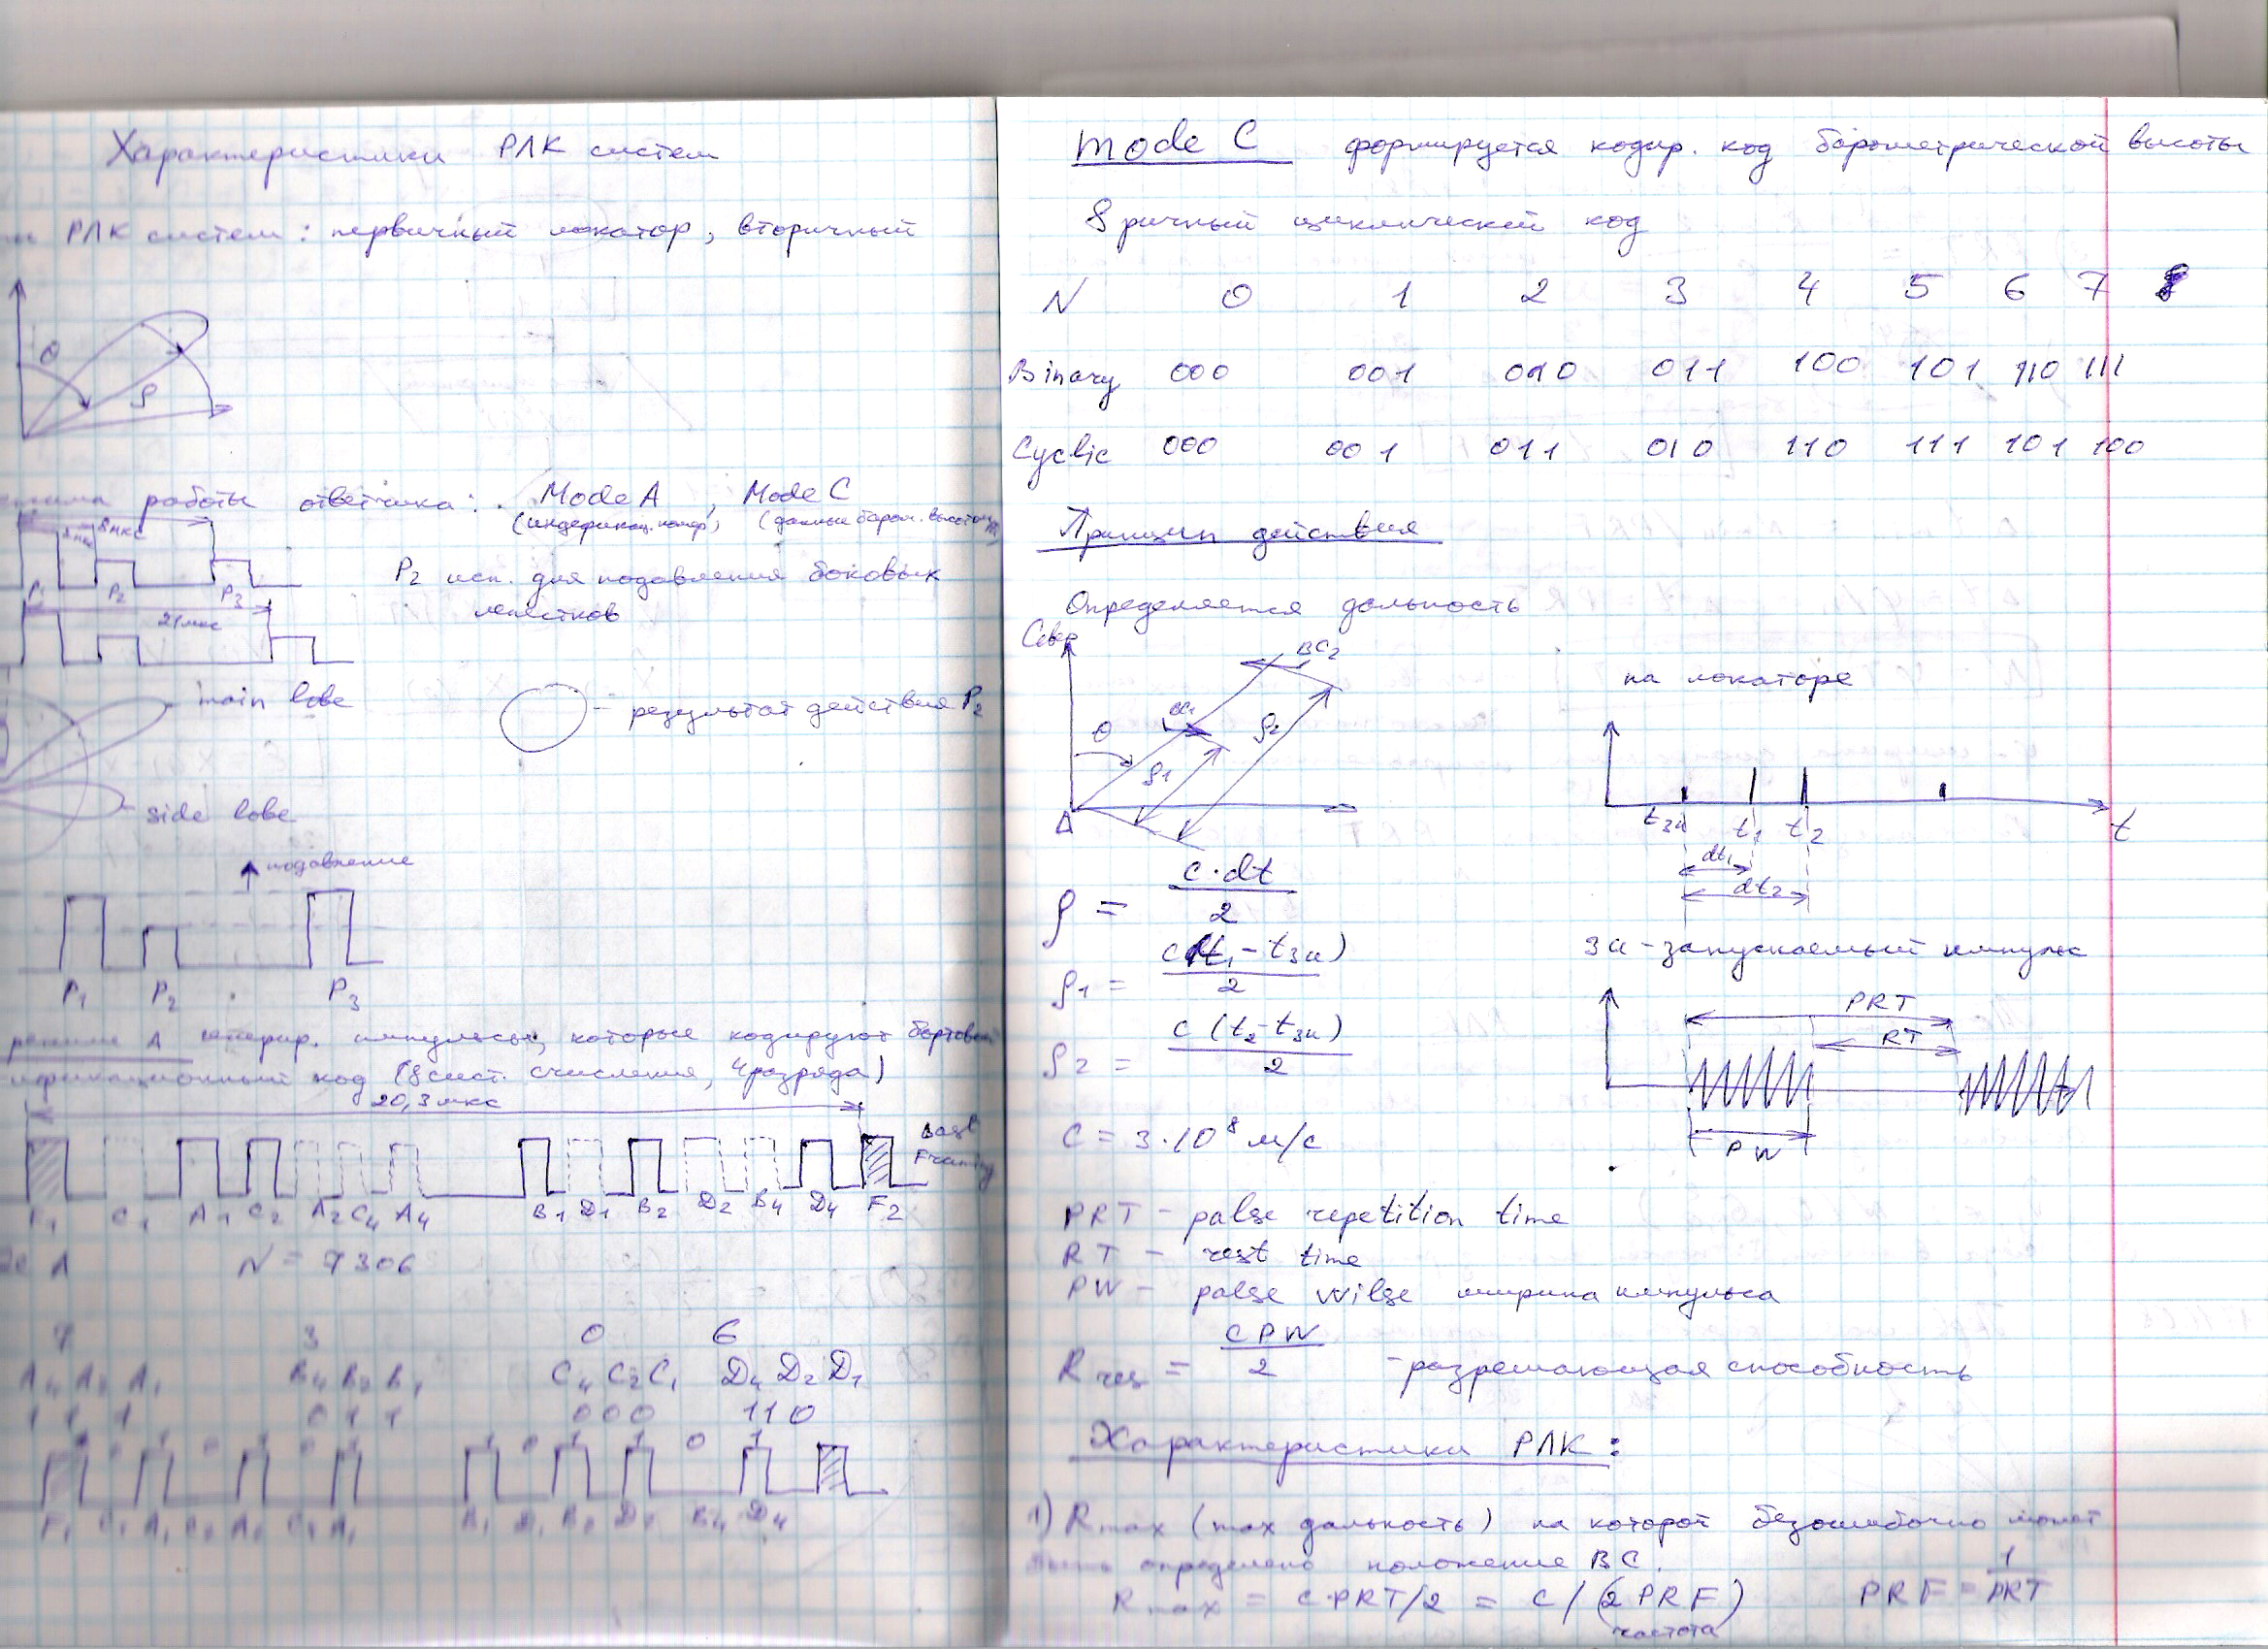 Характеристики РЛК систем
РЛК систем: первичный локатор, вторичный
θ
ρ
работы ответчика: Mode A, Mode C
(индефикац. номер) (данные баром. высотом.)
8мкс
P2 исп. для подавления боковых
лепестков
P1 P2 P3
21мкс
main lobe
– результат действия P2
side lobe
подавление
P1 P2 P3
режиме A генерир. импульсы, которые кодируют бортовой
ификационный код (8 сист. счисления, 4 разряда)
20,3 мкс
Last
Framing
F1 C1 A1 C2 A2 C4 A4 B1 D1 B2 D2 B4 D4 F2
A N = 7306
7 3 0 6
A4 A2 A1 B4 B2 B1 C4 C2 C1 D4 D2 D1
1 1 1 0 1 1 0 0 0 1 1 0
0 1 0 1 0 1 1 0 1 1 0 1
F1 C1 A1 C2 A2 C4 A4 B1 D1 B2 D2 B4 D4
mode C формируется кодир. код барометрической высоты
8 ричный циклический код
N 0 1 2 3 4 5 6 7
Binary 000 001 010 011 100 101 110 111
Cyclic 000 001 011 010 110 111 101 100
Принцип действия
Определяется дальность
Север
BC2
BC1
θ
ρ1
ρ2
A
на локаторе
tзи t1 t2 t
dt1
dt2
ρ = c·dt / 2
ρ1 = c(t1 – tзи) / 2
зи – запускаемый импульс
ρ2 = c (t2 – tзи) / 2
PRT
RT
PW
C = 3·10^8 м/с
PRT – palse repetition time
RT – rest time
PW – palse wilse ширина импульса
R res = c PW / 2 – разрешающая способность
Характеристики РЛК:
1) Rmax (max дальность) на которой безошибочно может
быть определено положение ВС.
Rmax = c·PRT/2 = c / (2 PRF) PRF = 1/PRT
частота